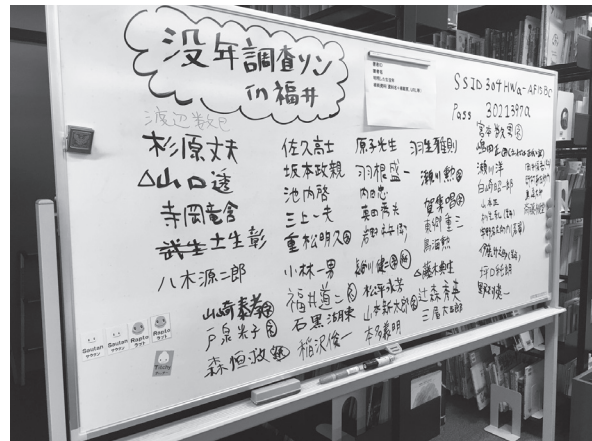 没年調査ソン
in福井
SSID 304HWa-AF10BC
Pass 3021397a
渡辺数巳
杉原丈夫
△山口透
寺岡竜含
武生土生彰
八木源二郎
山崎泰孝
戸泉米子
森恒政
佐久高士
坂本政親
池内啓
三上一夫
重松明久
小林一男
福井道二
石黒湖東
稲沢俊一
原子先生
羽根盛一
内田忠
真田秀夫
細川健
松平永芳
山本新太郎
本多義明
羽生雅則
瀬川勲
賀集唱
東郷重三
鳥海勲
△藤木典生
辻森秀英
三屋太五郎
瀬川洋
白崎昭一郎
坪口純朗
野村慎一
Sautan
サウタン
Sautan
サウタン
Rapto
ラプト
Rapto
ラプト
Titchy